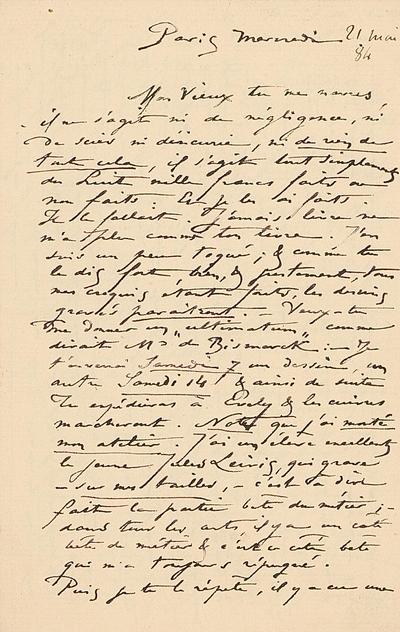 Paris Mercredi 21 mai
84
Mon Vieux tu me navres
il ne s'agit ni de négligence, ni
de scies ni d'incurie, ni de rien de
tout cela, il s'agit tout simplement
de huit mille francs faits ou
non faits. Et je les ai faits.
Il le fallait. Jamais livre ne
m'a plu comme ton livre. J'en
suis un peu toqué; & comme tu
le dis fort bien, & justement, tous
mes croquis étant faits, les dessins
gravés paraitront. — Veux-tu
me donner un "ultimatum" comme
dirait Mr de Bismarck: — Je
t'enverrai Samedi 7 un dessin, un
autre Samedi 14 & ainsi de suite
Tu expédieras à Evely & les cuivres
marcheront. Note que j'ai monté
mon atelier. J'ai un élève excellent
le jeune Jules, qui grave
— sur mes tailles, — c'est à dire
fait la partie bête du métier; —
dans tous les arts, il y a un côté
bête de métier & c'est ce côté bête
qui m'a toujours répugné.
Puis je te le répète, il y a eu une